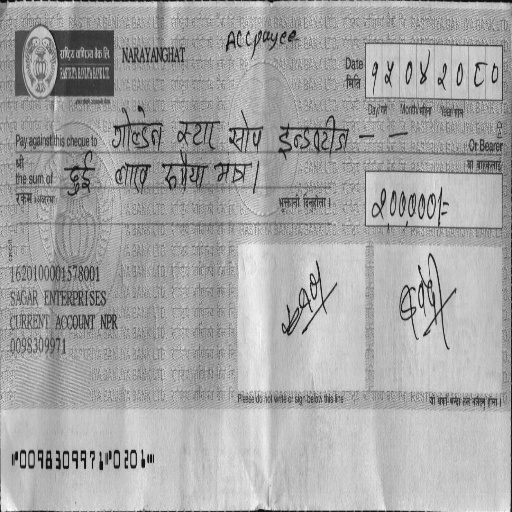 Accpayee
राष्ट्रिय वाणिज्य बैंक लि.
RASTRIYA BANIJYA BANK LTD.
NARAYANGHAT
Date
मिति
१५ ०४ २०८०
Day/गते Month/महिना Year/साल
Pay against this cheque to गोल्डेन स्टार सोप इन्डस्टीज - -
श्री
Or Bearer
वा वाहकलाई
the sum of दुई लाख रुपैया मात्र।
रकम (अक्षरमा)
भुक्तानी दिनुहोला।
२,०००००।=
1620100001578001
SAGAR ENTERPRISES
CURRENT ACCOUNT NPR
0098309971
Please do not write or sign below this line
0098309971 0201